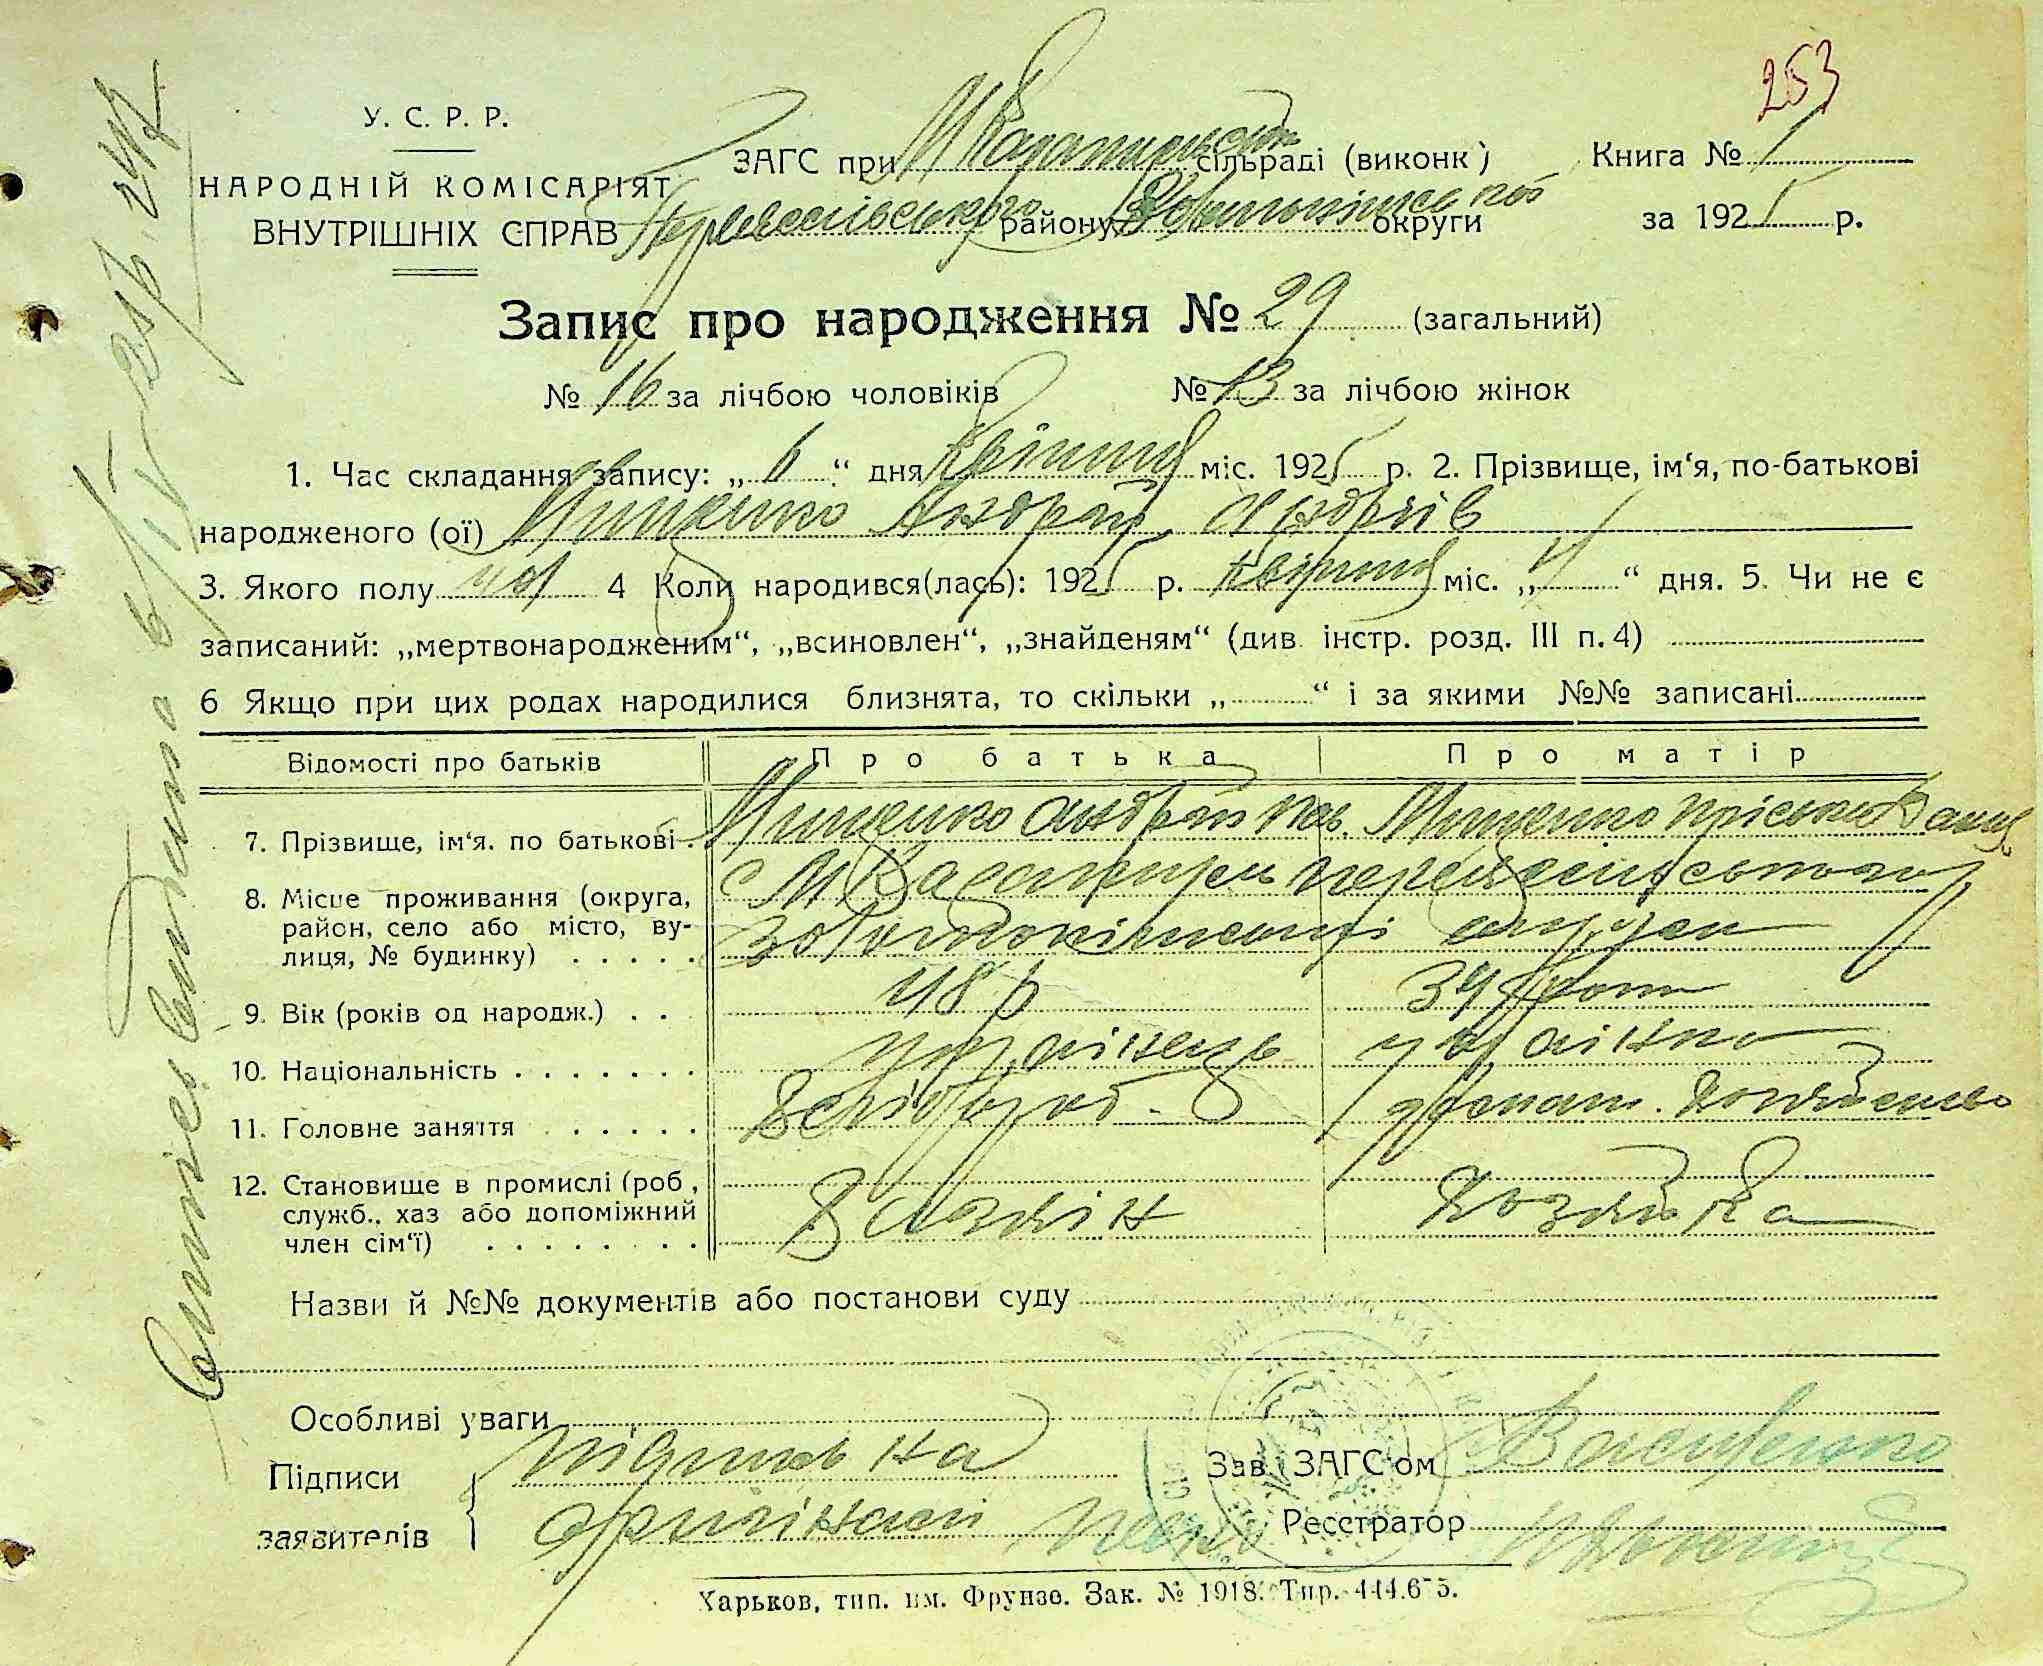 253
У. С. Р. Р.
НАРОДНІЙ КОМІСАРІЯТ
ВНУТРІШНІХ СПРАВ
ЗАГС при М Каратульск сільраді (виконк)
Книга № 1
Переяслівського району округи
за 1925 р.
Запис про народження № 29 (загальний)
№ 16 за лічбою чоловіків № 13 за лічбою жінок
1. Час складання запису: „ 6 “ дня Квітня міс. 1925 р. 2. Прізвище, ім‘я, по-батькові
народженого (ої) Мищенко Андрій Андріїв
3. Якого полу чол 4 Коли народився(лась): 1925 р. Квітня міс. „ 4 “ дня. 5. Чи не є
записаний: „мертвонародженим“, „всиновлен“, „знайденям“ (див. інстр. розд. III п. 4)
6 Якщо при цих родах народилися близнята, то скільки „ “ і за якими №№ записані
Відомості про батьків Про батька Про матір
7. Прізвище, ім‘я. по батькові Мищенко Андрій Мищенко
8. Місце проживання (округа, с М Каратуль
район, село або місто, ву-
лиця, № будинку)
9. Вік (років од народж.) 48 р 34 роки
10. Національність українець українка
11. Головне заняття хлібороб домаш. хозяйство
12. Становище в промислі (роб,
служб., хаз або допоміжний
член сім‘ї) хазяін хозяйка
Назви й №№ документів або постанови суду
Особливі уваги
Підписи
заявителів
підпись на
оригіналі
Зав. ЗАГС‘ом
Реєстратор
Харьков, тип. им. Фрунзе. Зак. № 1918. Тир. 444.675.